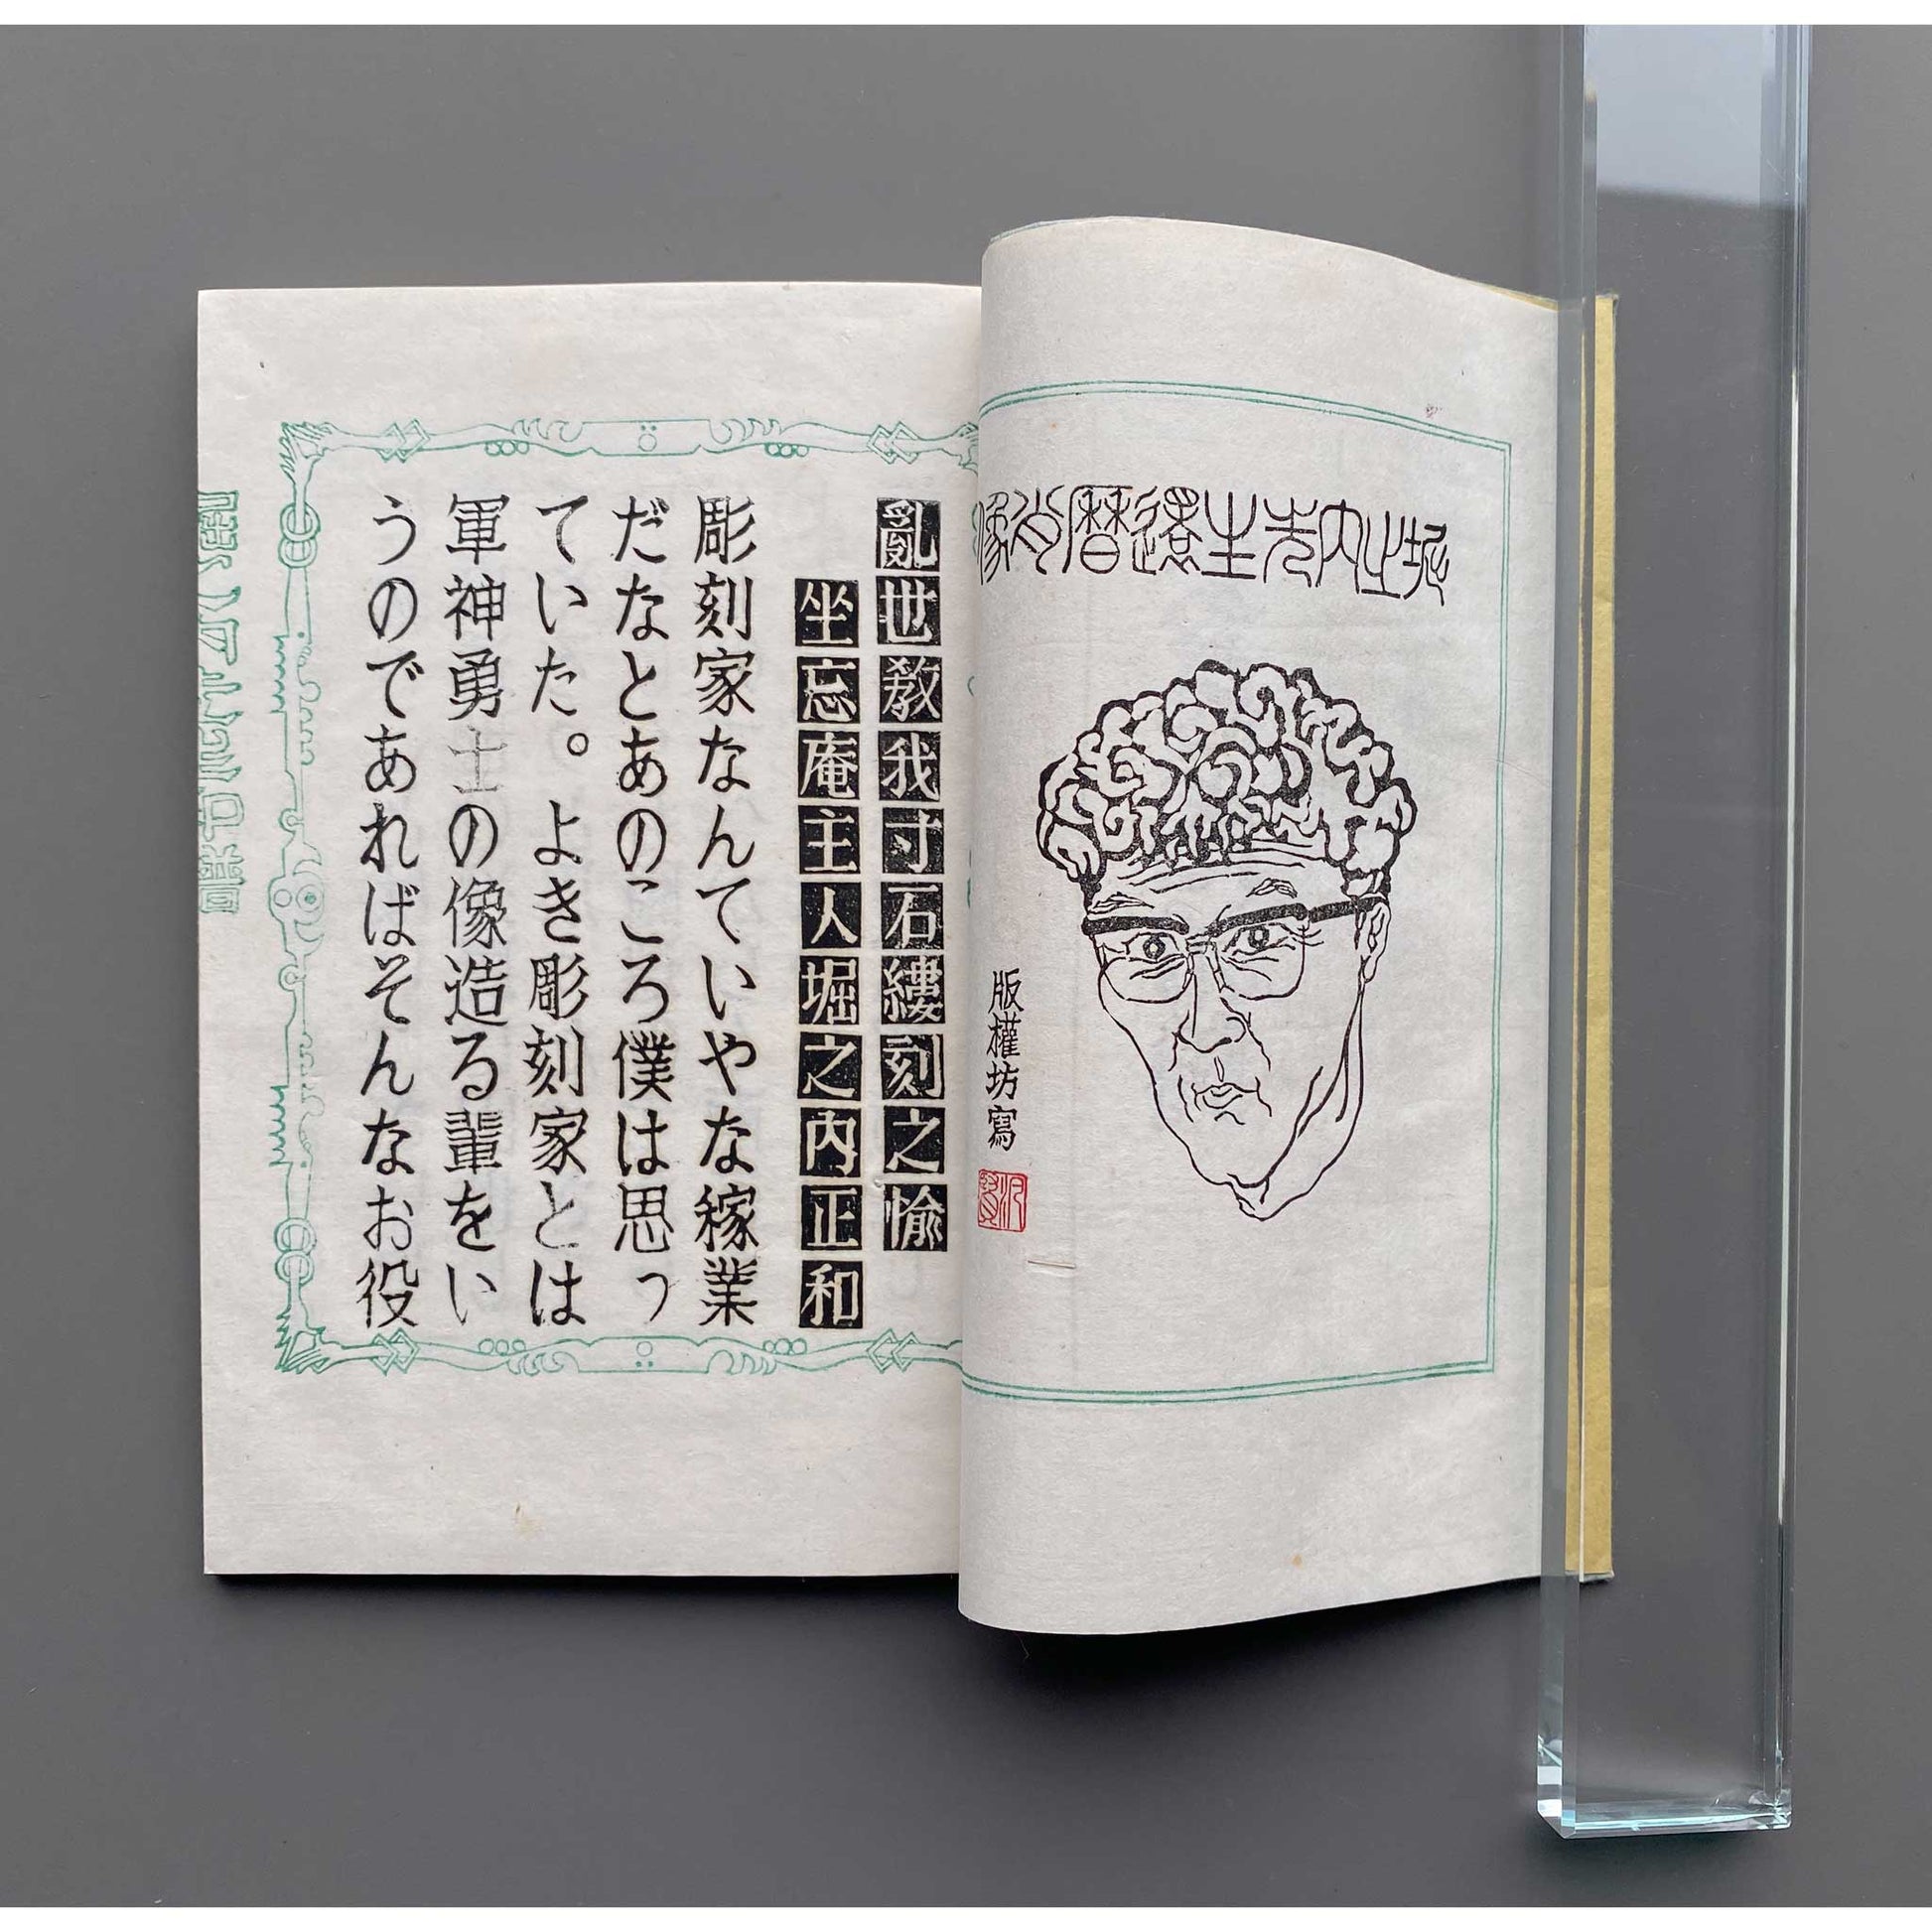 堀之内先生還暦肖像
版權坊寫
亂世敎我寸石縷刻之愉
坐忘庵主人堀之内正和
彫刻家なんていやな稼業
だなとあのころ僕は思っ
ていた。よき彫刻家とは
軍神勇士の像造る輩をい
うのであればそんなお役